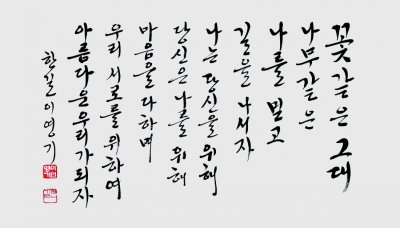 꽃같은 그대
나무같은
나를 믿고
길을 나서자
나는 당신을 위해
당신은 나를 위해
마음을 다하며
우리 서로를 위하여
아름다운 우리가 되자
한길 이영기